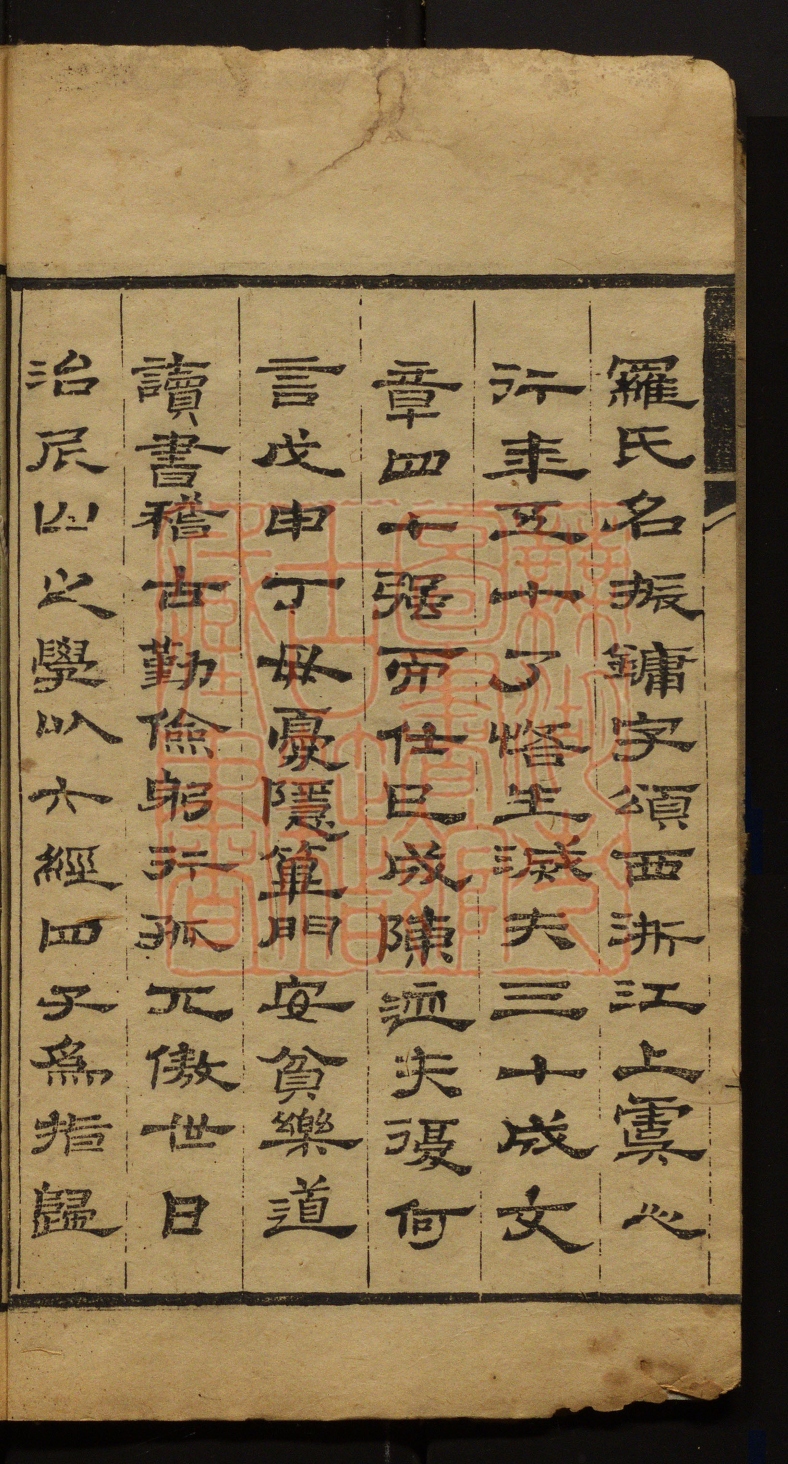 羅氏名振鏞字頌西浙江上虞心
行年五十了悟生滅夫三十成文
章四十强而仕已成陳迹夫復何
言戊申丁毋憂隱篳門安貧樂道
讀書稽古勤儉躬行孤兀傲世日
治尼山之學以六經四子爲指歸